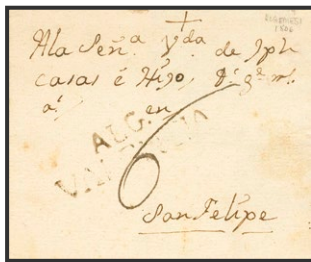 A la Señ.ª V.da de Jph
casas é Hijo
en
ALG.
VALENCIA
6
San Felipe